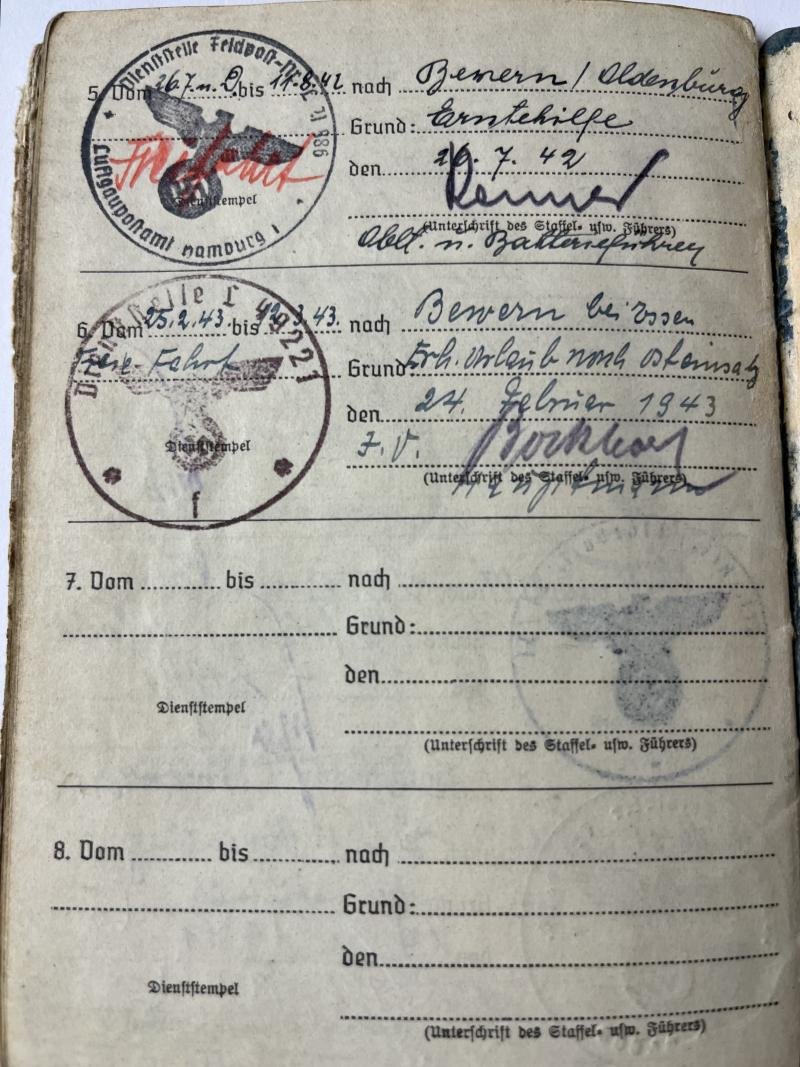 Dienststelle Feldpost-Nr. L
Luftgaupostamt Hamburg 1
5. Vom 26.7. n. D. bis 14.8.42 nach Bewern / Oldenburg
Freifahrt Grund: Erntehilfe
den 26. 7. 42
Dienststempel
(Unterschrift des Staffel- usw. Führers)
Oblt. u. Batterieführer
Dienststelle L 49221
6. Vom 25.2.43. bis 12.3.43. nach Bewern bei Essen
Freie-Fahrt Grund: Erh. Urlaub nach Osteinsatz
den 24. Februar 1943
Dienststempel
I. V.
(Unterschrift des Staffel- usw. Führers)
Hauptmann
f
7. Vom bis nach
Grund:
den
Dienststempel
(Unterschrift des Staffel- usw. Führers)
8. Vom bis nach
Grund:
den
Dienststempel
(Unterschrift des Staffel- usw. Führers)